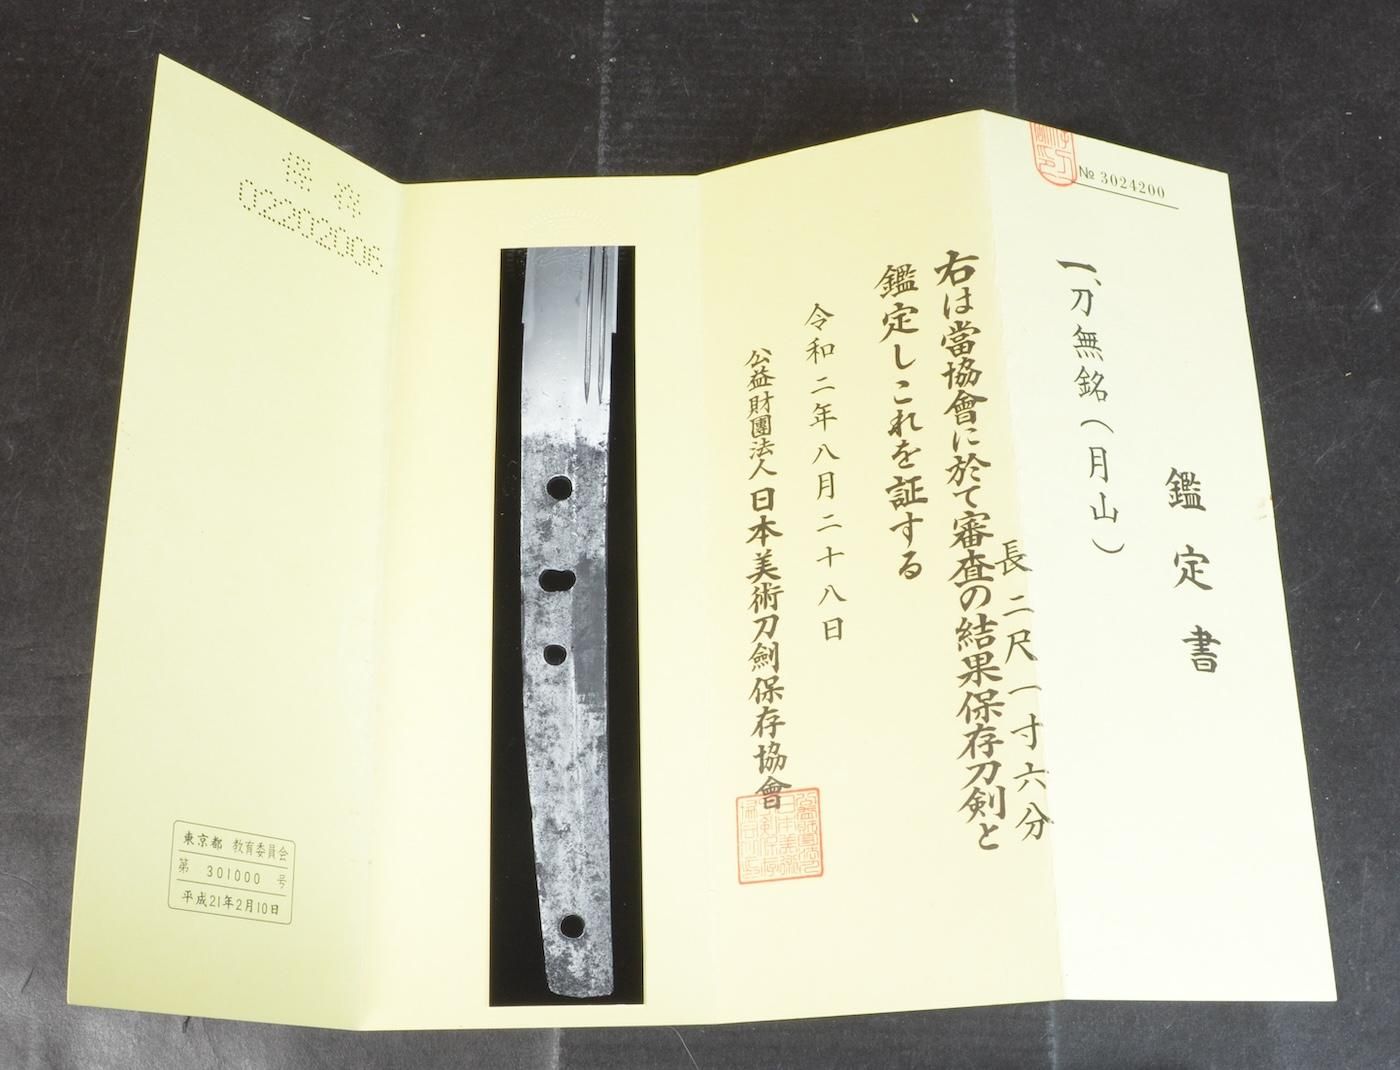 № 3024200
鑑定書
一、刀 無銘(月山)
長二尺一寸六分
右は當協會に於て審査の結果保存刀剣と
鑑定しこれを証する
令和二年八月二十八日
公益財團法人 日本美術刀劍保存協會
保存
02202006
東京都 教育委員会
第 301000 号
平成21年2月10日